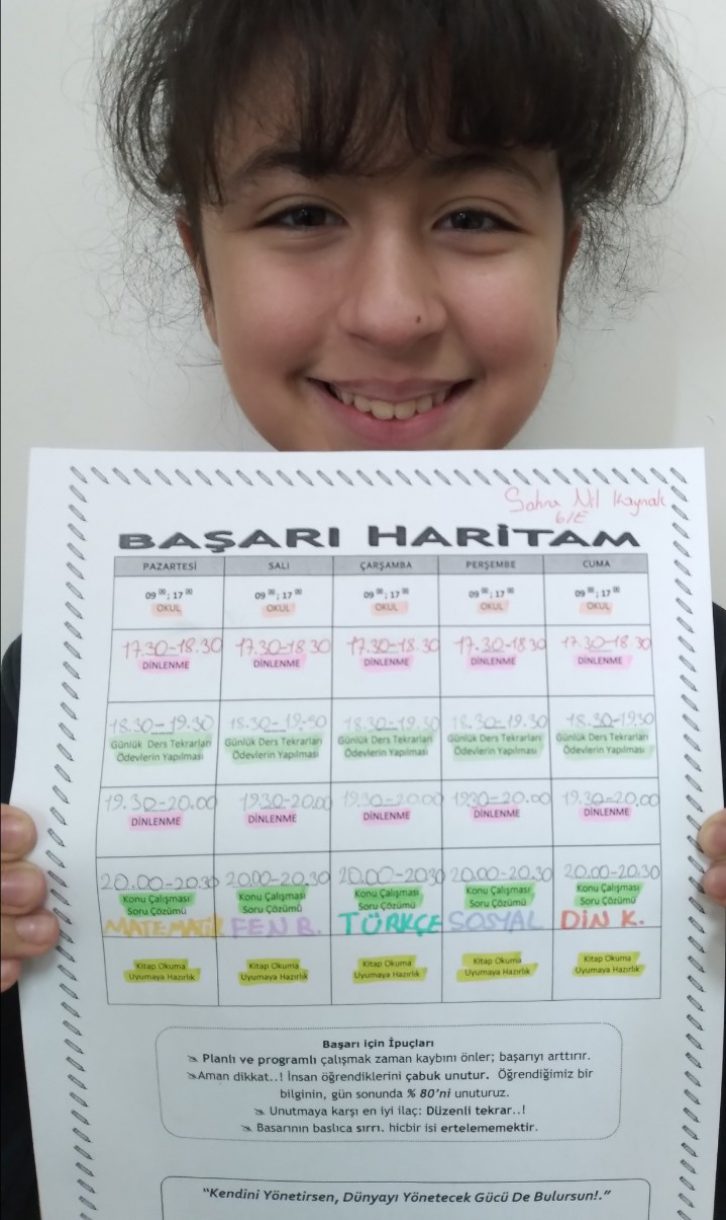 Sahra Nil Kaynak
6/E
BAŞARI HARİTAM
PAZARTESİ SALI ÇARŞAMBA PERŞEMBE CUMA
09 00 : 17 00 09 00 : 17 00 09 00 : 17 00 09 00 : 17 00 09 00 : 17 00
OKUL OKUL OKUL OKUL OKUL
17.30-18.30 17.30-18.30 17.30-18.30 17.30-18.30 17.30-18.30
DİNLENME DİNLENME DİNLENME DİNLENME DİNLENME
18.30-19.30 18.30-19.30 18.30-19.30 18.30-19.30 18.30-19.30
Günlük Ders Tekrarları Günlük Ders Tekrarları Günlük Ders Tekrarları Günlük Ders Tekrarları Günlük Ders Tekrarları
Ödevlerin Yapılması Ödevlerin Yapılması Ödevlerin Yapılması Ödevlerin Yapılması Ödevlerin Yapılması
19.30-20.00 19.30-20.00 19.30-20.00 1930-20.00 19.30-20.00
DİNLENME DİNLENME DİNLENME DİNLENME DİNLENME
20.00-20.30 2000-20.30 20.00-2030 20.00-20.30 20.00-20.30
Konu Çalışması Konu Çalışması Konu Çalışması Konu Çalışması Konu Çalışması
Soru Çözümü Soru Çözümü Soru Çözümü Soru Çözümü Soru Çözümü
MATEMATİK FEN B. TÜRKÇE SOSYAL DİN K.
Kitap Okuma Kitap Okuma Kitap Okuma Kitap Okuma Kitap Okuma
Uyumaya Hazırlık Uyumaya Hazırlık Uyumaya Hazırlık Uyumaya Hazırlık Uyumaya Hazırlık
Başarı için İpuçları
Planlı ve programlı çalışmak zaman kaybını önler; başarıyı arttırır.
Aman dikkat..! İnsan öğrendiklerini çabuk unutur. Öğrendiğimiz bir
bilginin, gün sonunda % 80'ni unuturuz.
Unutmaya karşı en iyi ilaç: Düzenli tekrar..!
Başarının başlıca sırrı, hiçbir işi ertelememektir.
"Kendini Yönetirsen, Dünyayı Yönetecek Gücü De Bulursun!."